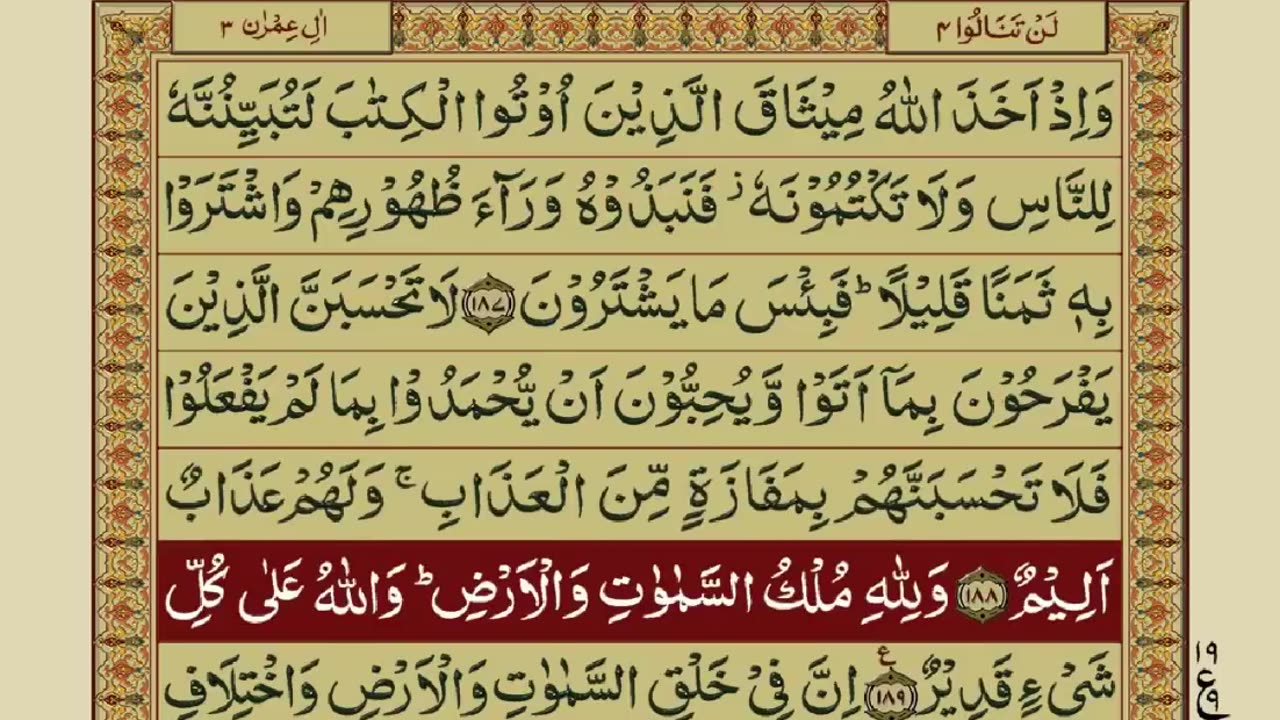 لَنْ تَنَالُوا ۴
اٰلِ عِمْرٰن ۳
وَاِذْ اَخَذَ اللّٰهُ مِيْثَاقَ الَّذِيْنَ اُوْتُوا الْكِتٰبَ لَتُبَيِّنُنَّهٗ
لِلنَّاسِ وَلَا تَكْتُمُوْنَهٗ ز فَنَبَذُوْهُ وَرَآءَ ظُهُوْرِهِمْ وَاشْتَرَوْا
بِهٖ ثَمَنًا قَلِيْلًا ؕ فَبِئْسَ مَا يَشْتَرُوْنَ ﴿۱۸۷﴾ لَا تَحْسَبَنَّ الَّذِيْنَ
يَفْرَحُوْنَ بِمَاۤ اَتَوْا وَّيُحِبُّوْنَ اَنْ يُّحْمَدُوْا بِمَا لَمْ يَفْعَلُوْا
فَلَا تَحْسَبَنَّهُمْ بِمَفَازَةٍ مِّنَ الْعَذَابِ ۚ وَلَهُمْ عَذَابٌ
اَلِيْمٌ ﴿۱۸۸﴾ وَلِلّٰهِ مُلْكُ السَّمٰوٰتِ وَالْاَرْضِ ؕ وَاللّٰهُ عَلٰى كُلِّ
شَیْءٍ قَدِيْرٌ ﴿۱۸۹﴾ ع اِنَّ فِىْ خَلْقِ السَّمٰوٰتِ وَالْاَرْضِ وَاخْتِلَافِ
۱۹
ع
۹